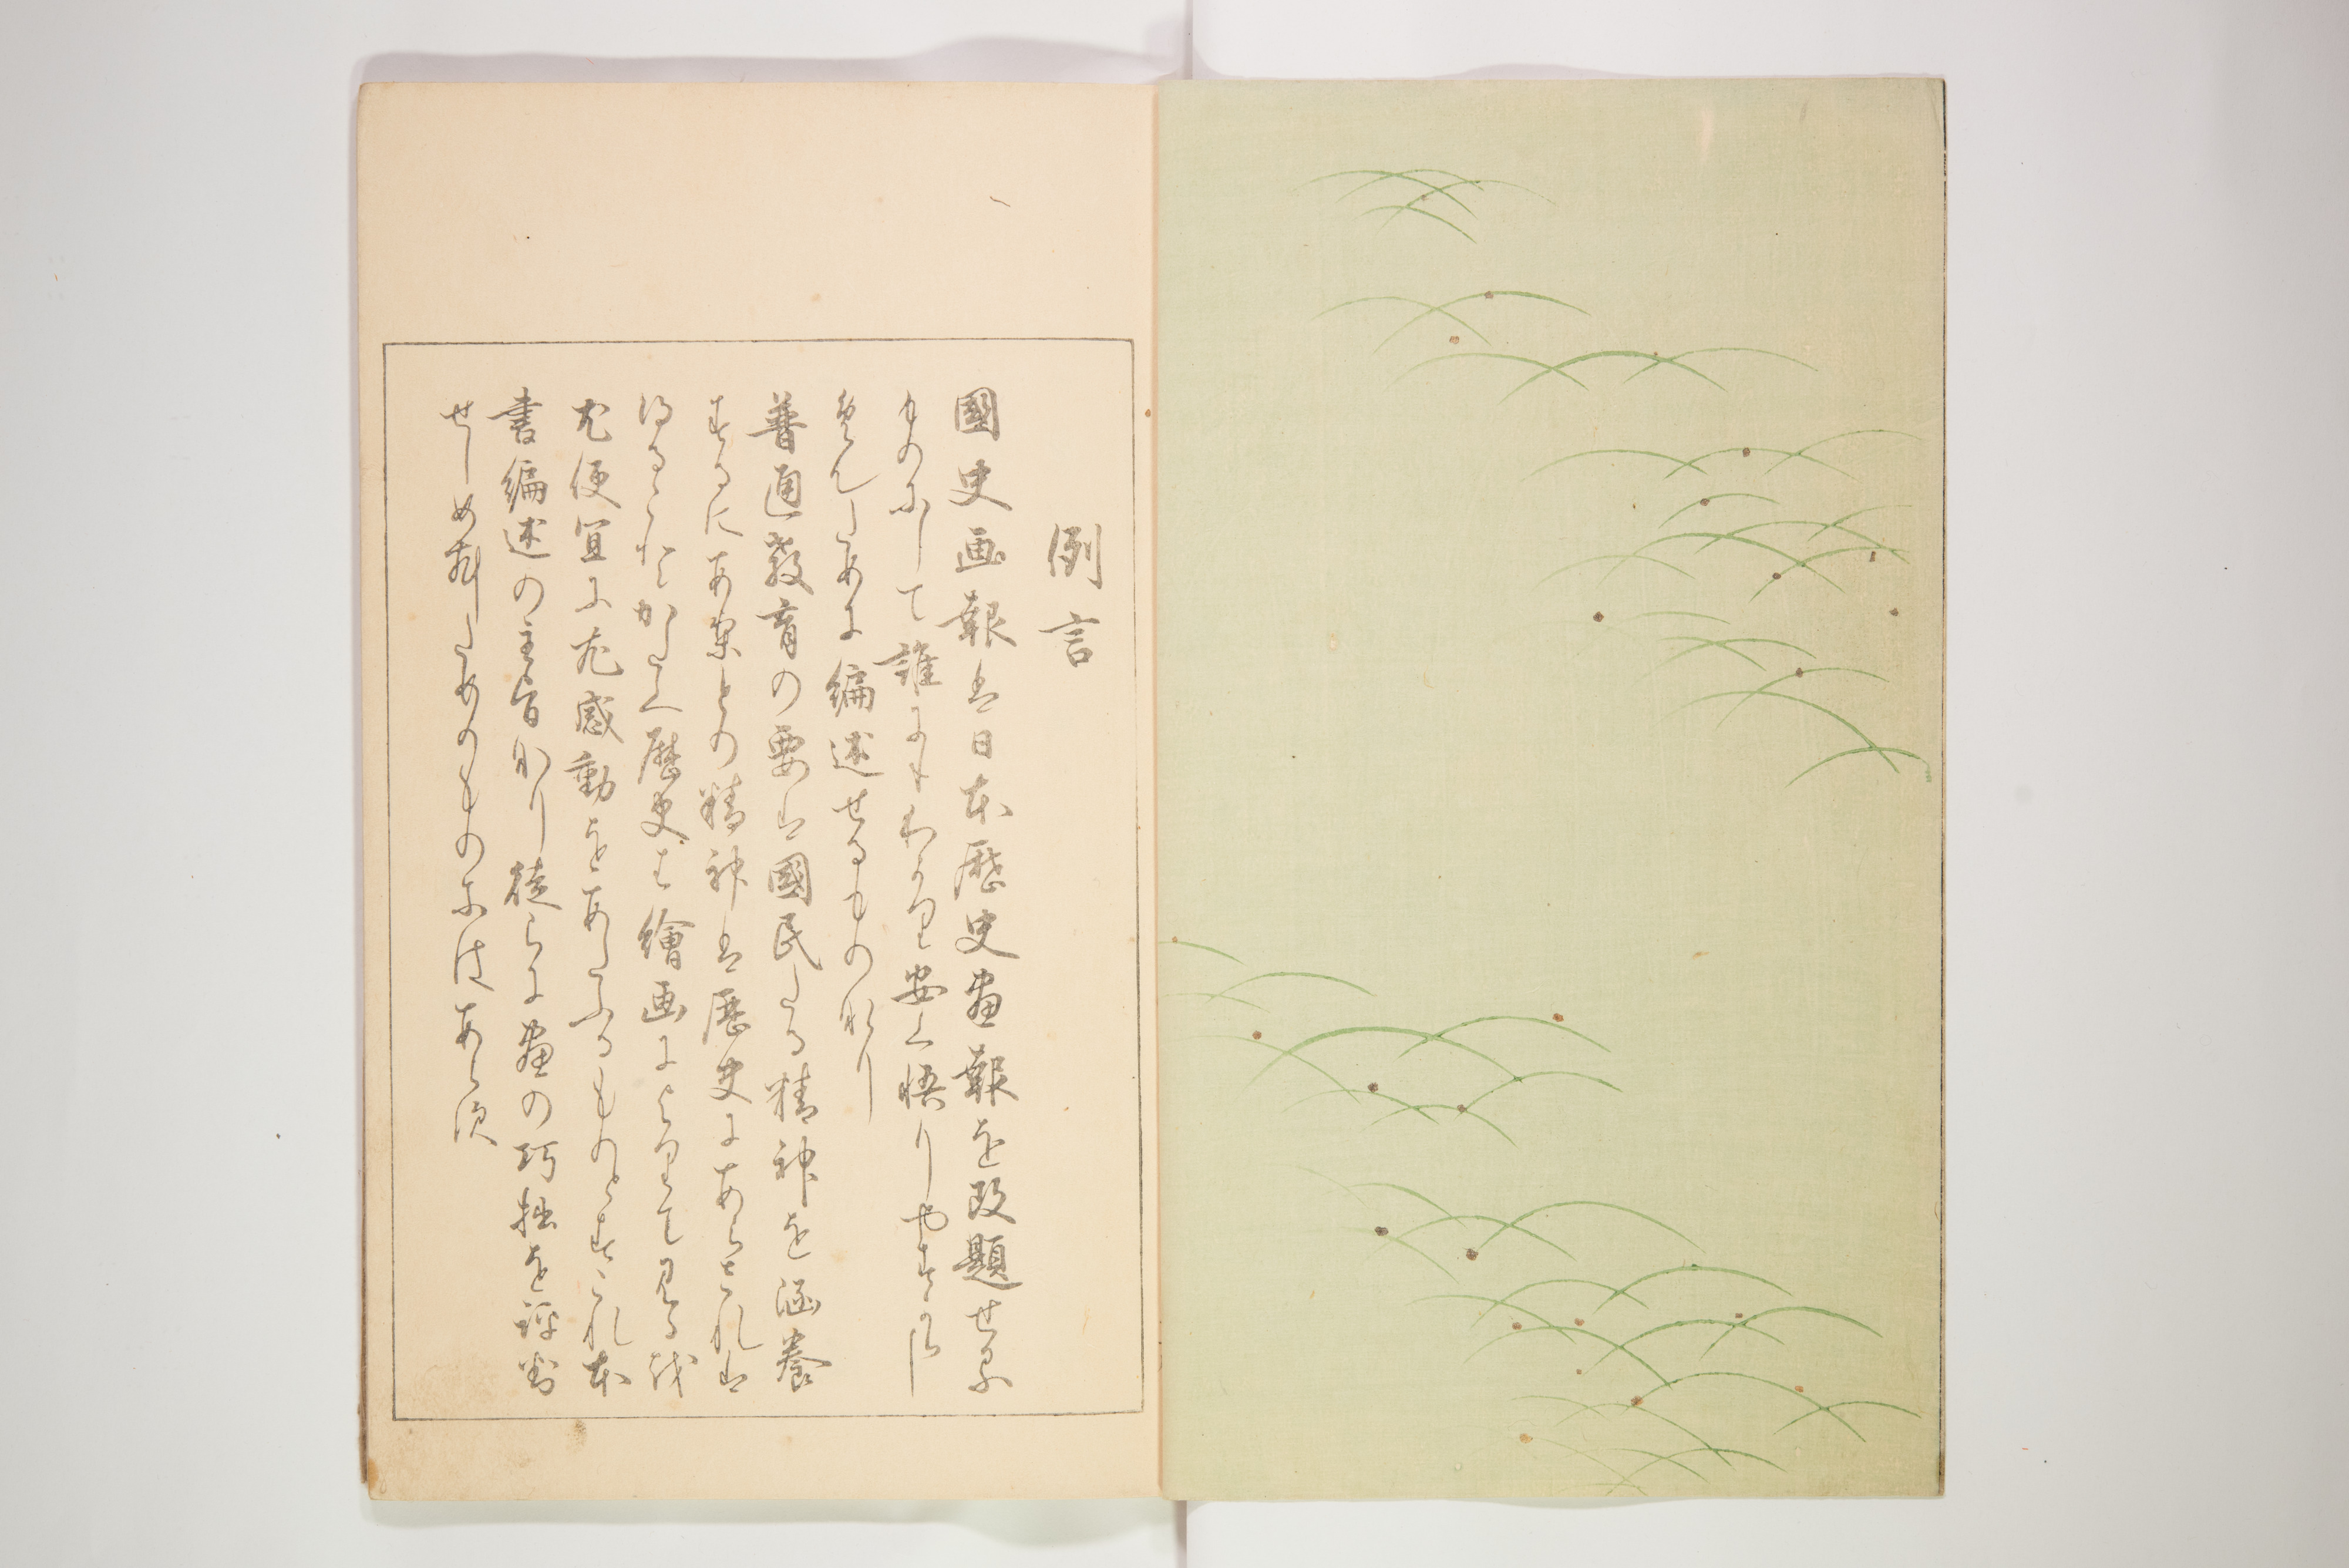 例言
國史画報は日本歴史畫報を改題せる
ものにして誰にもわかり安く悟りやすからし
めんため に編述せるものなり
普通教育の要は國民たる精神を涵養
するにあり其の精神は歴史にあらされは
得ることかたく歴史は繪画によりて見る
尤便宜に尤感動をあたふるものとすこれ本
書編述の主旨なり徒らに畫の巧拙を評
せしめむためのものにはあらす